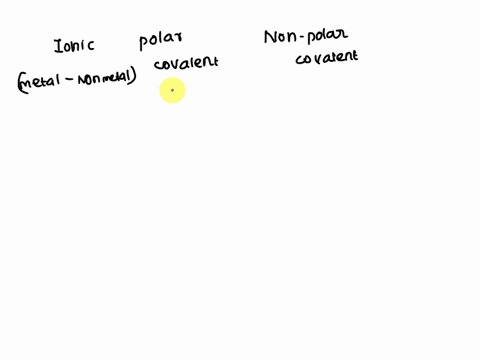 Ionic
(metal - Nonmetal)
polar
covalent
Non-polar
covalent